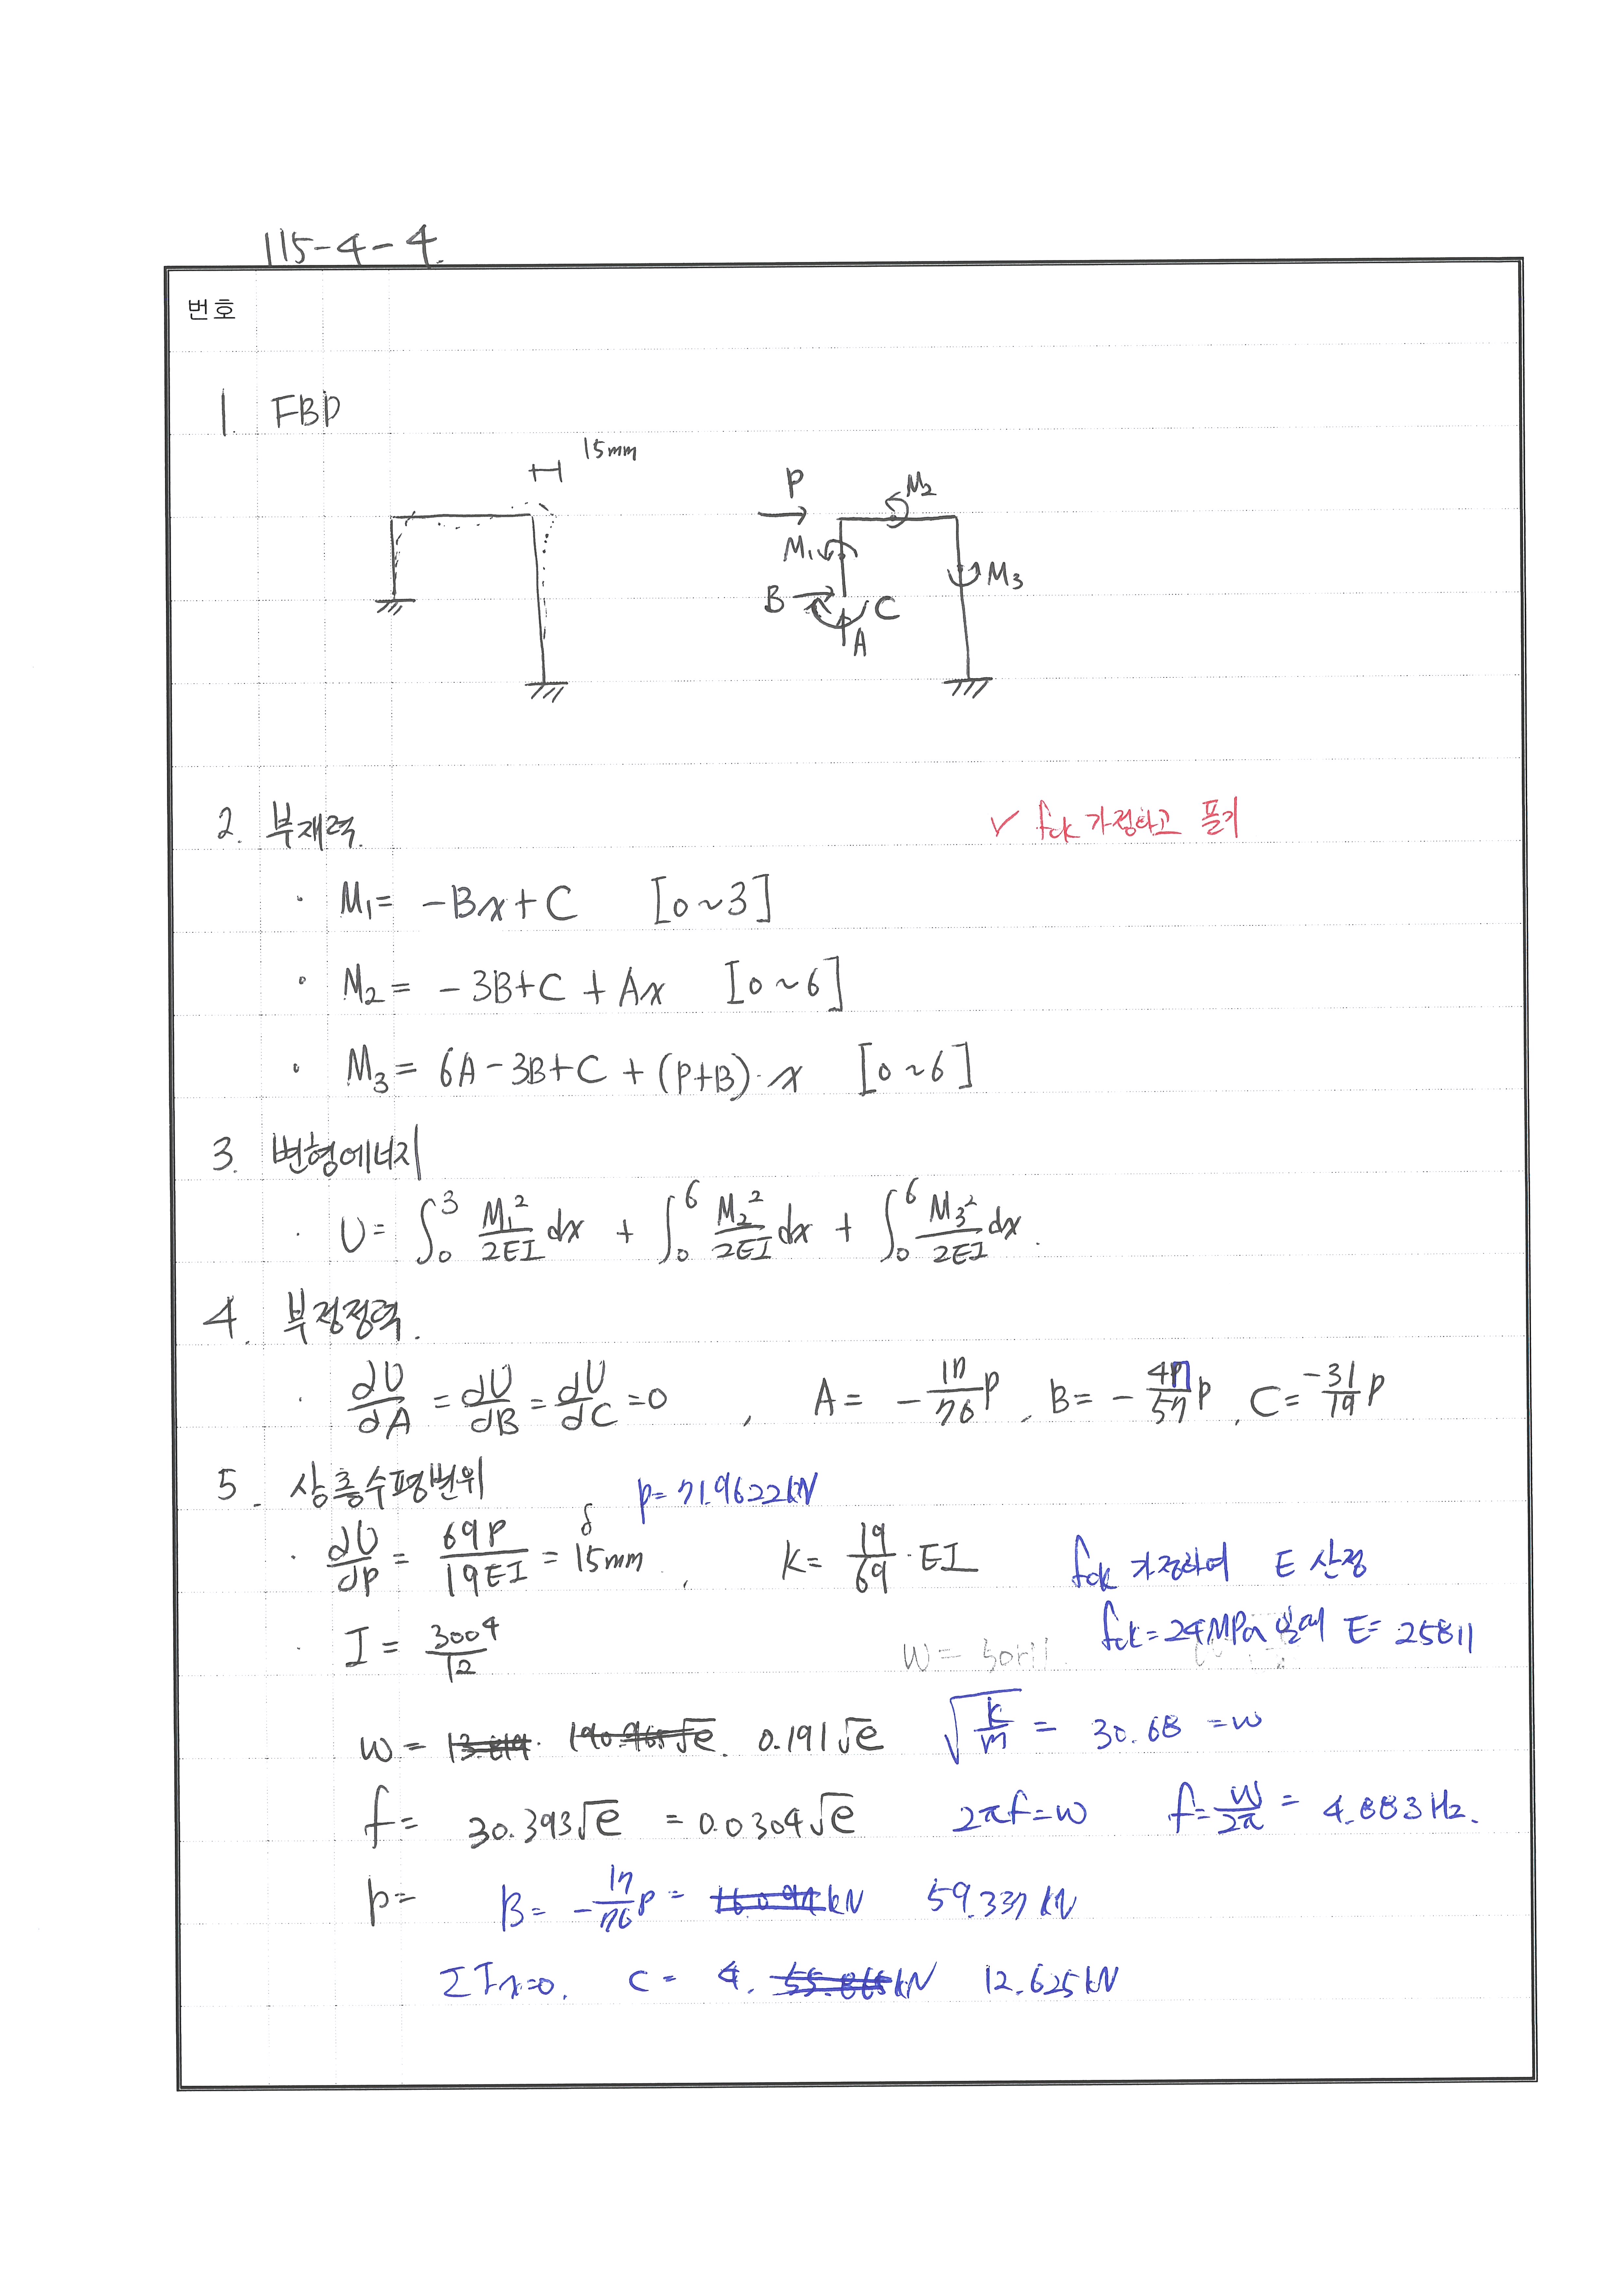 115-4-4.
번호
1. FBD
15mm
P
M2
M1
B
C
A
M3
2. 부재력.
✓ fck 가정하고 풀기
· M1= -Bx+C [0~3]
· M2= -3B+C+Ax [0~6]
· M3= 6A-3B+C+(P+B)·x [0~6]
3. 변형에너지
· U= ∫₀³ M1²/2EI dx + ∫₀⁶ M2²/2EI dx + ∫₀⁶ M3²/2EI dx.
4. 부정정력.
· ∂U/∂A = ∂U/∂B = ∂U/∂C =0 , A= -17/76 P, B= -47/57 P, C= -31/19 P
5. 상층수평변위 P=71.9622kN
· ∂U/∂P = 69P/19EI = δ 15mm , K= 19/69·EI fck 가정하여 E 산정
· I= 300⁴/12 fck=24MPa 일때 E= 25811
w= 0.191√e √(k/m) = 30.68 =w
f= 30.393√e = 0.0304√e 2πf=w f= w/2π = 4.883Hz.
P= B= -17/76 P= kN 59.337kN
ΣFx=0. C= 4. kN 12.625kN